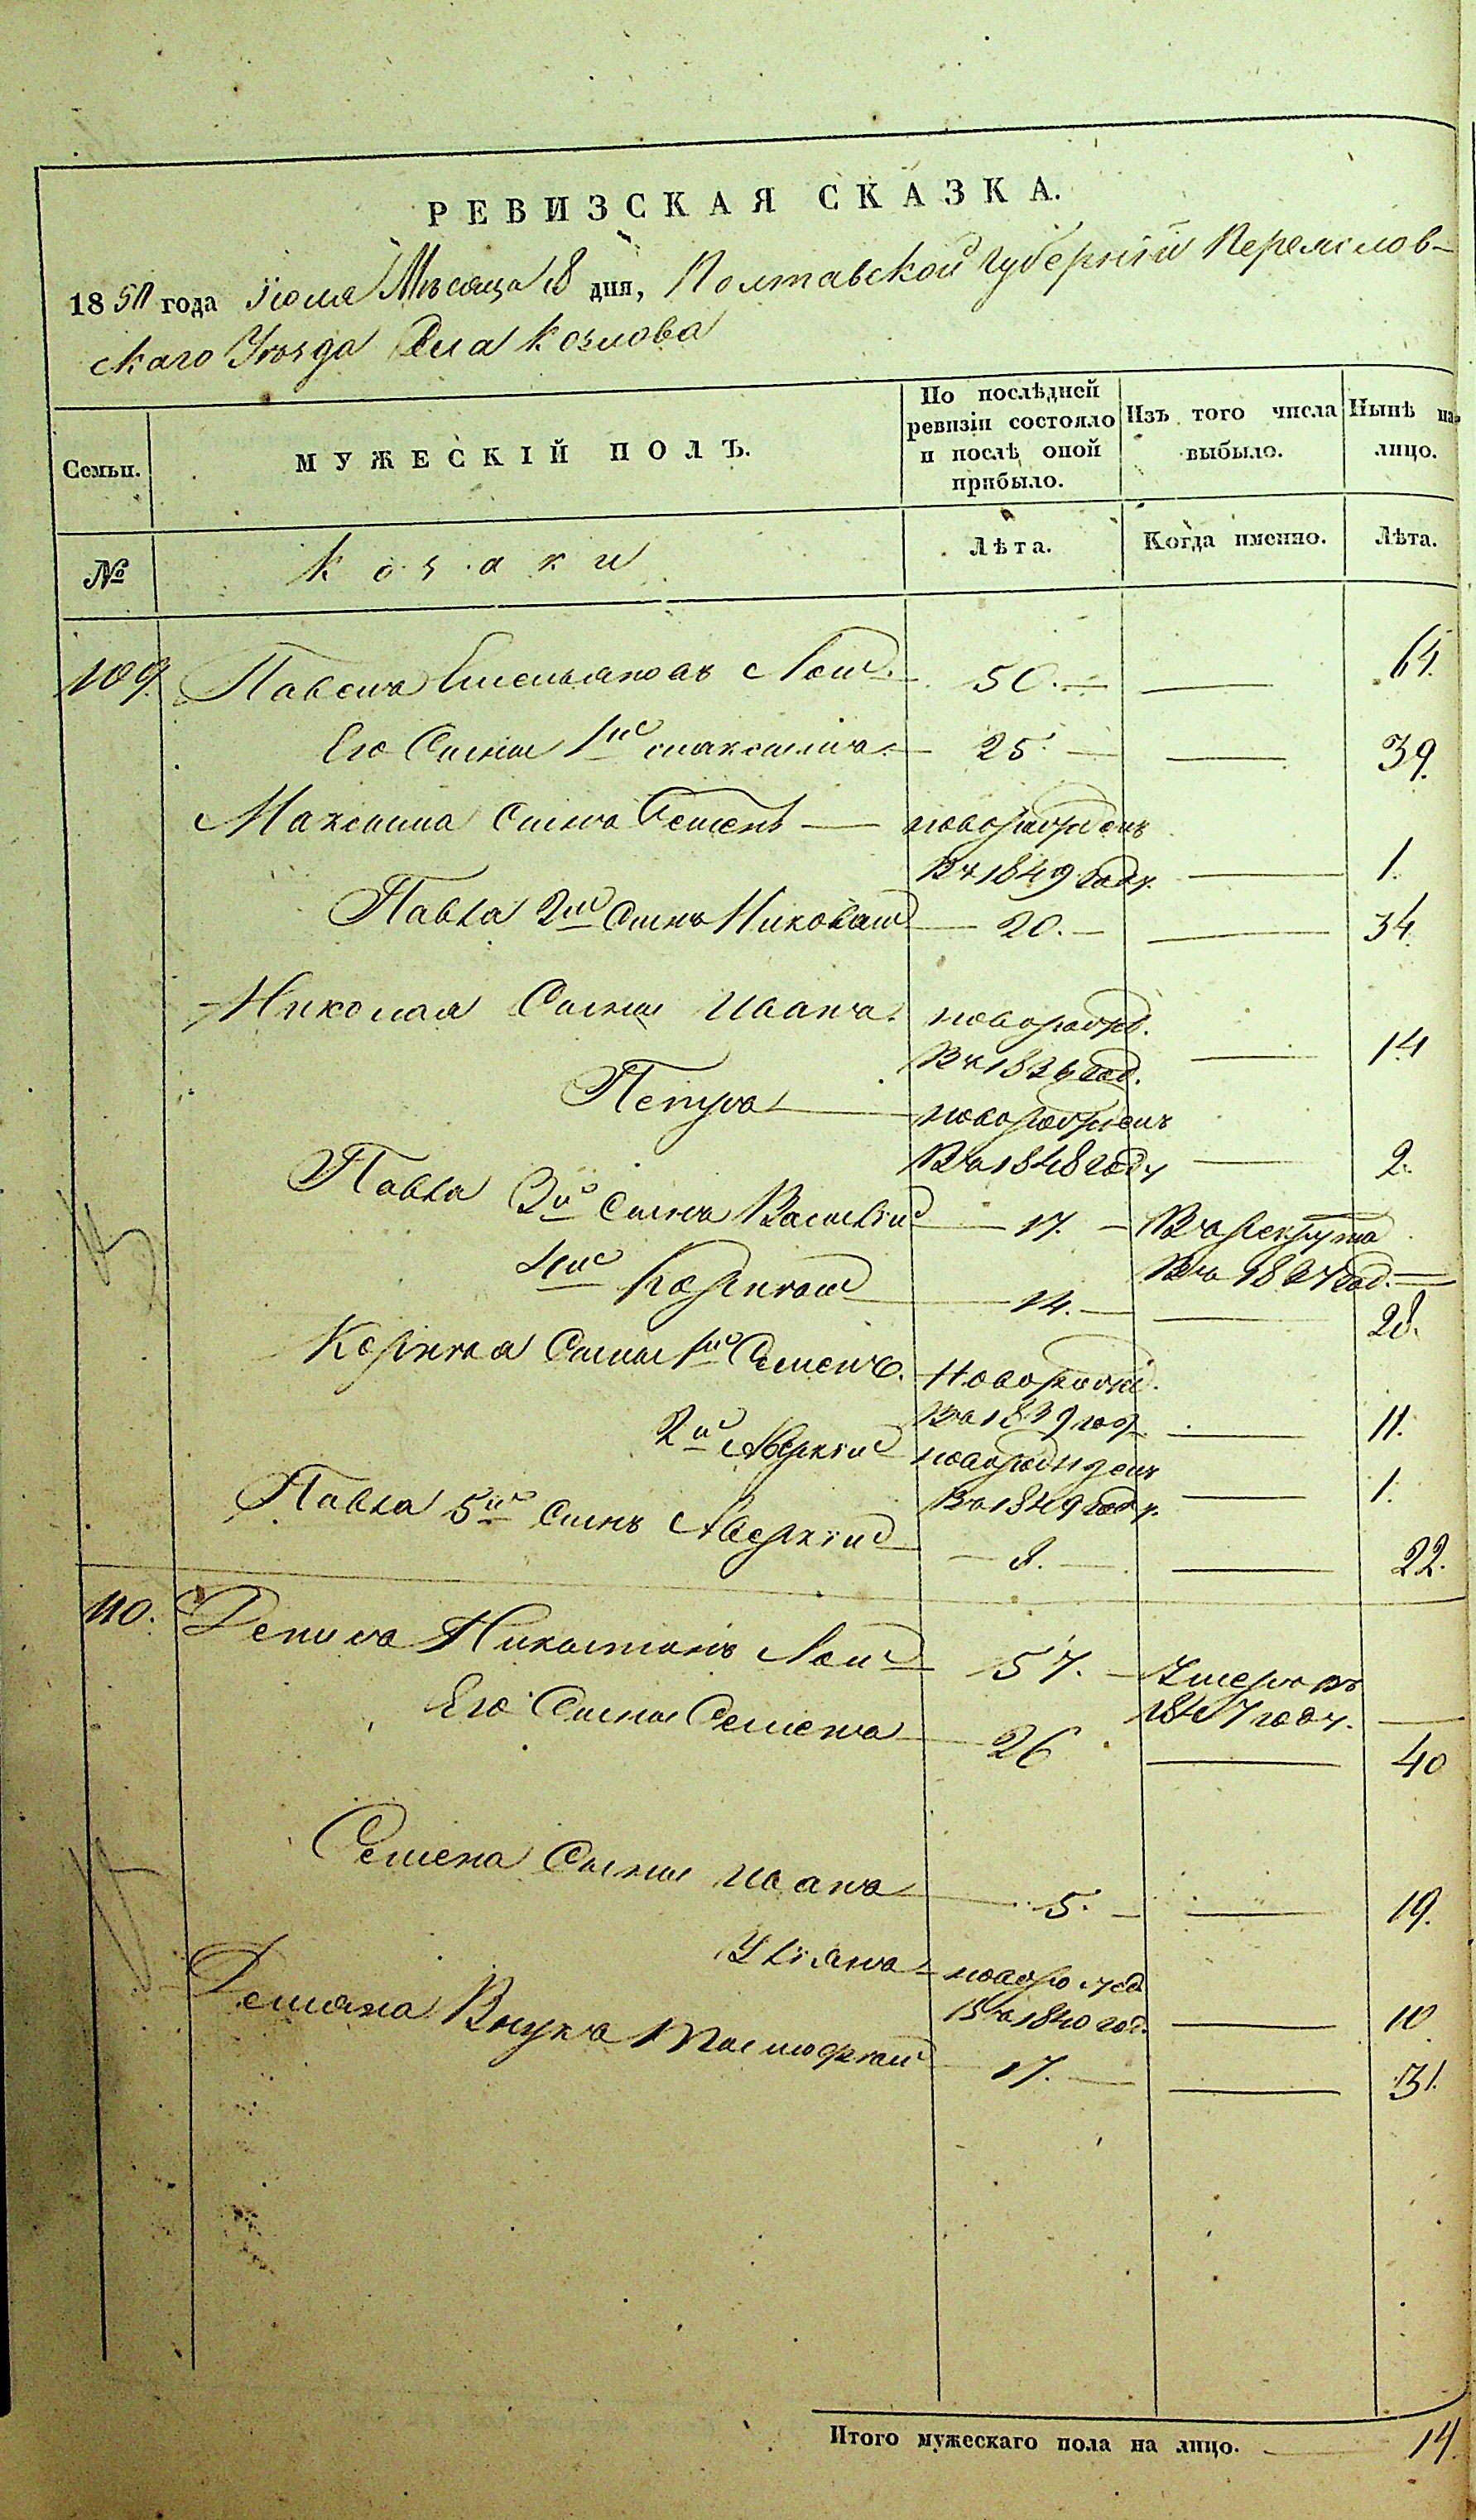 РЕВИЗСКАЯ СКАЗКА.
1850 года Іюля Мѣсяца 8 дня, Полтавской Губерніи Переяслов-
скаго Уѣзда Села Козлова
Семьи. МУЖЕСКІЙ ПОЛЪ. По послѣдней ревизіи состояло и послѣ оной прибыло. Изъ того числа выбыло. Нынѣ на лицо.
№ Козаки Лѣта. Когда именно. Лѣта.
109. Павелъ Емельяновъ 50. 64.
Его Сыны 1й Максимъ 25. 39.
Максима Сынъ Семенъ новорожденъ
въ 1849 году. 1.
Павла 2й Сынъ Николай 20. 34
Николая Сыны Иванъ. новорожд.
въ 1836 год. 14
Петръ новорожденъ
въ 1848 году 2.
Павла 3й Сынъ Василій 17. В рекрута
въ 1837 год.
4й Корнилій 14. 28.
Сыны 1й Семенъ. Новорожд.
въ 1839 год 11.
2й Аверкій новорожденъ
въ 1849 году. 1.
Павла 5й Сынъ Аверкій 8. 22.
110. Никитинъ 57. Умеръ въ
1847 году.
Его Сынъ Семенъ 26 40
Семена Сыны Иванъ 5. 19.
Ульянъ новорожд
въ 1840 год. 10
Внукъ Тимофей 17. 31.
Итого мужескаго пола на лицо. 14.